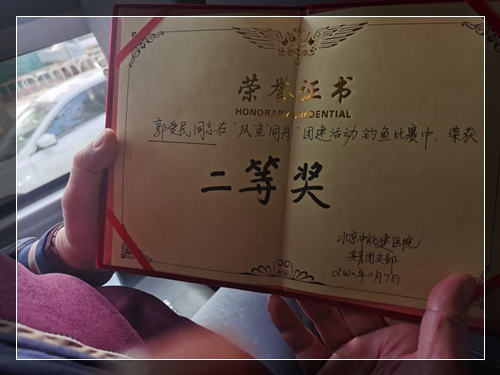 荣誉证书
HONORARY CREDENTIAL
郭爱民同志在"风鱼同舟"团建活动钓鱼比赛中，荣获
二等奖
北京中能建医院
共青团支部
2020年11月7日